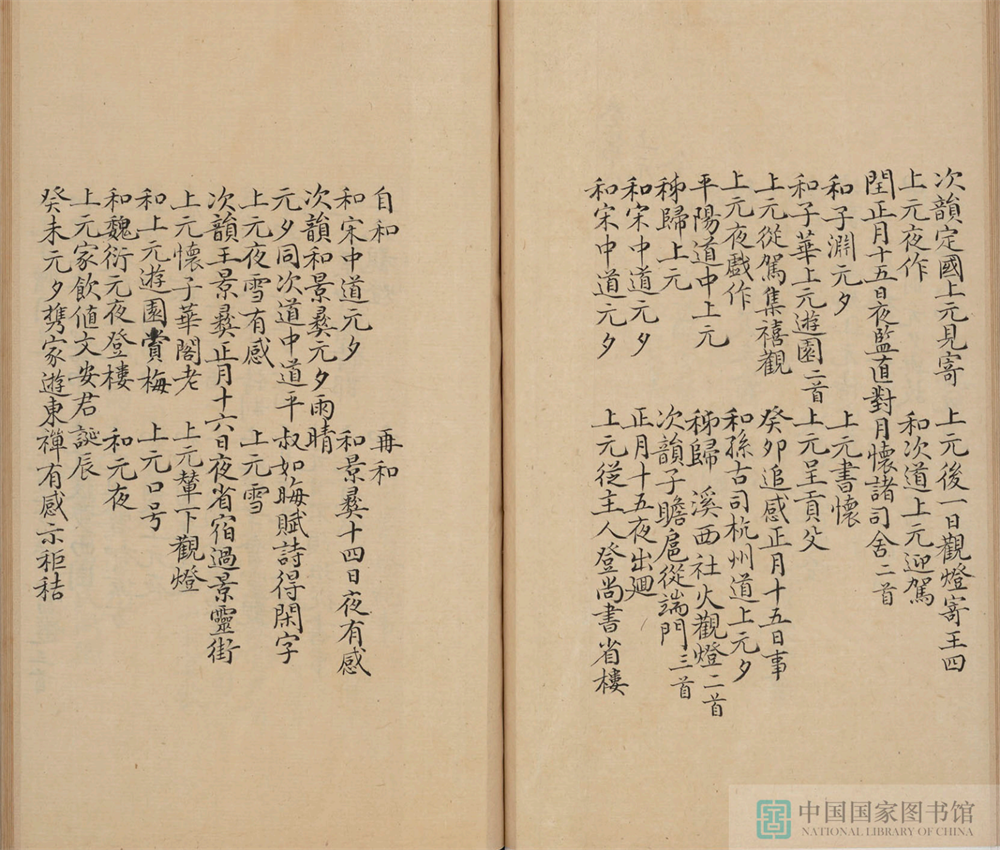 次韻定國上元見寄　上元後一日觀燈寄王四
上元夜作　和次道上元迎駕
閏正月十五日夜監直對月懷諸司舍二首
和子淵元夕　上元書懷
和子華上元遊園二首　上元呈貢父
上元從駕集禧觀　癸卯追感正月十五日事
上元夜戲作　和孫古司杭州道上元夕
平陽道中上元　秭歸　溪西社火觀燈二首
秭歸上元　次韻子瞻扈從端門三首
和宋中道元夕　正月十五夜出廻
和宋中道元夕　上元從主人登尚書省樓
自和　再和
和宋中道元夕　和景彝十四日夜有感
次韻和景彝元夕雨晴
元夕同次道中道平叔如晦賦詩得閑字
上元夜雪有感　上元雪
次韻王景彝正月十六日夜省宿過景靈街
上元懷子華閣老　上元輦下觀燈
和上元遊園賞梅　上元口号
和魏衍元夜登樓　和元夜
上元家飲值文安君誕辰
癸未元夕攜家遊東禪有感示秬秸
中国国家图书馆
NATIONAL LIBRARY OF CHINA